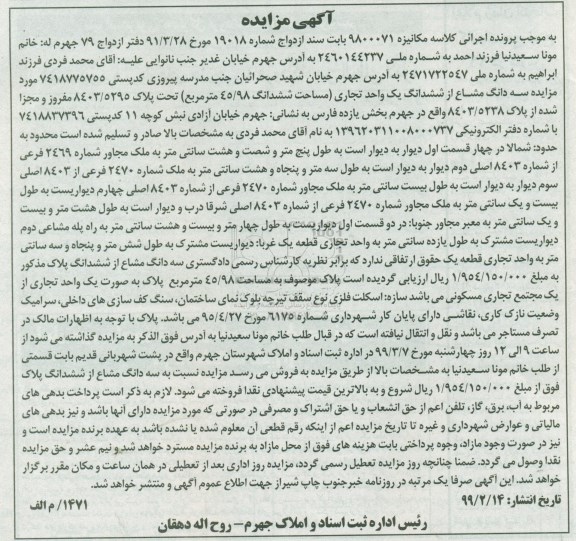 آگهی مزایده
به موجب پرونده اجرائی کلاسه مکانیزه ۹۸۰۰۰۷۱ بابت سند ازدواج شماره ۱۹۰۱۸ مورخ ۹۱/۳/۲۸ دفتر ازدواج ۷۹ جهرم له: خانم
مونا سعیدنیا فرزند احمد به شماره ملی ۲۴۶۰۱۴۴۲۳۷ به آدرس جهرم خیابان غدیر جنب نانوایی علیه: آقای محمد فردی فرزند
ابراهیم به شماره ملی ۲۴۷۱۷۲۲۵۴۷ به آدرس جهرم خیابان شهید صحرائیان جنب مدرسه پیروزی کدپستی ۷۴۱۸۷۷۵۷۵۵ مورد
مزایده سه دانگ مشاع از ششدانگ یک واحد تجاری (مساحت ششدانگ ۴۵/۹۸ مترمربع) تحت پلاک ۸۴۰۳/۵۲۹۵ مفروز و مجزا
شده از پلاک ۸۴۰۳/۵۲۳۸ واقع در جهرم بخش یازده فارس به نشانی: جهرم خیابان آزادی نبش کوچه ۱۱ کدپستی ۷۴۱۸۸۳۷۳۹۶
با شماره دفتر الکترونیکی ۱۳۹۶۲۰۳۱۱۰۰۸۰۰۰۷۳۷ به نام آقای محمد فردی به مشخصات بالا صادر و تسلیم شده است محدود به
حدود: شمالا در چهار قسمت اول دیوار به دیوار است به طول پنج متر و شصت و هشت سانتی متر به ملک مجاور شماره ۲۴۶۹ فرعی
از شماره ۸۴۰۳ اصلی دوم دیوار به دیوار است به طول سه متر و پنجاه و هشت سانتی متر به ملک شماره ۲۴۷۰ فرعی از ۸۴۰۳ اصلی
سوم دیوار به دیوار است به طول بیست سانتی متر به ملک مجاور شماره ۲۴۷۰ فرعی از شماره ۸۴۰۳ اصلی چهارم دیواریست به طول
بیست و یک سانتی متر به ملک مجاور شماره ۲۴۷۰ فرعی از شماره ۸۴۰۳ اصلی شرقا درب و دیوار است به طول هشت متر و بیست
و یک سانتی متر به معبر مجاور جنوبا: در دو قسمت اول دیواریست به طول چهار متر و بیست و هشت سانتی متر به راه پله مشاعی دوم
دیواریست مشترک به طول یازده سانتی متر به واحد تجاری قطعه یک غربا: دیواریست مشترک به طول شش متر و پنجاه و سه سانتی
متر به واحد تجاری قطعه یک حقوق ارتفاقی ندارد که برابر نظریه کارشناس رسمی دادگستری سه دانگ مشاع از ششدانگ پلاک مذکور
به مبلغ ۱/۹۵۴/۱۵۰/۰۰۰ ریال ارزیابی گردیده است پلاک موصوف به مساحت ۴۵/۹۸ مترمربع پلاک به صورت یک واحد تجاری از
یک مجتمع تجاری مسکونی می باشد سازه: اسکلت فلزی نوع سقف تیرچه بلوک نمای ساختمان، سنگ کف سازی های داخلی، سرامیک
وضعیت نازک کاری، نقاشی دارای پایان کار شهرداری شماره ۶۱۷۵ مورخ ۹۵/۴/۲۷ می باشد. پلاک با توجه به اظهارات مالک در
تصرف مستاجر می باشد و نقل و انتقال نیافته است که در قبال طلب خانم مونا سعیدنیا به آدرس فوق الذکر به مزایده گذاشته می شود از
ساعت ۹ الی ۱۲ روز چهارشنبه مورخ ۹۹/۳/۷ در اداره ثبت اسناد و املاک شهرستان جهرم واقع در پشت شهربانی قدیم بابت قسمتی
از طلب خانم مونا سعیدنیا به مشخصات بالا از طریق مزایده به فروش می رسد مزایده نسبت به سه دانگ مشاع از ششدانگ پلاک
فوق از مبلغ ۱/۹۵۴/۱۵۰/۰۰۰ ریال شروع و به بالاترین قیمت پیشنهادی نقدا فروخته می شود. لازم به ذکر است پرداخت بدهی های
مربوط به آب، برق، گاز، تلفن اعم از حق انشعاب و یا حق اشتراک و مصرفی در صورتی که مورد مزایده دارای آنها باشد و نیز بدهی های
مالیاتی و عوارض شهرداری و غیره تا تاریخ مزایده اعم از اینکه رقم قطعی آن معلوم شده یا نشده باشد به عهده برنده مزایده است و
نیز در صورت وجود مازاد، وجوه پرداختی بابت هزینه های فوق از محل مازاد به برنده مزایده مسترد خواهد شد و نیم عشر و حق مزایده
نقدا وصول می گردد. ضمنا چنانچه روز مزایده تعطیل رسمی گردد، مزایده روز اداری بعد از تعطیلی در همان ساعت و مکان مقرر برگزار
خواهد شد. این آگهی صرفا یک مرتبه در روزنامه خبرجنوب چاپ شیراز جهت اطلاع عموم آگهی و منتشر خواهد شد.
تاریخ انتشار: ۹۹/۲/۱۴
۱۴۷۱/ م الف
رئیس اداره ثبت اسناد و املاک جهرم – روح اله دهقان